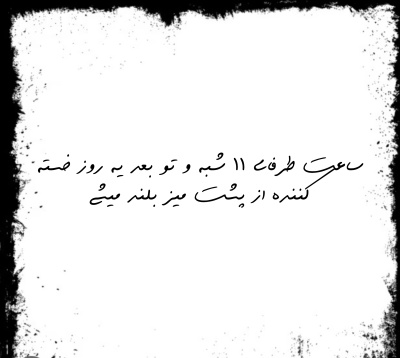 ساعت طرفای ۱۱ شبه و تو بعد یه روز خسته
کننده از پشت میز بلند میشی